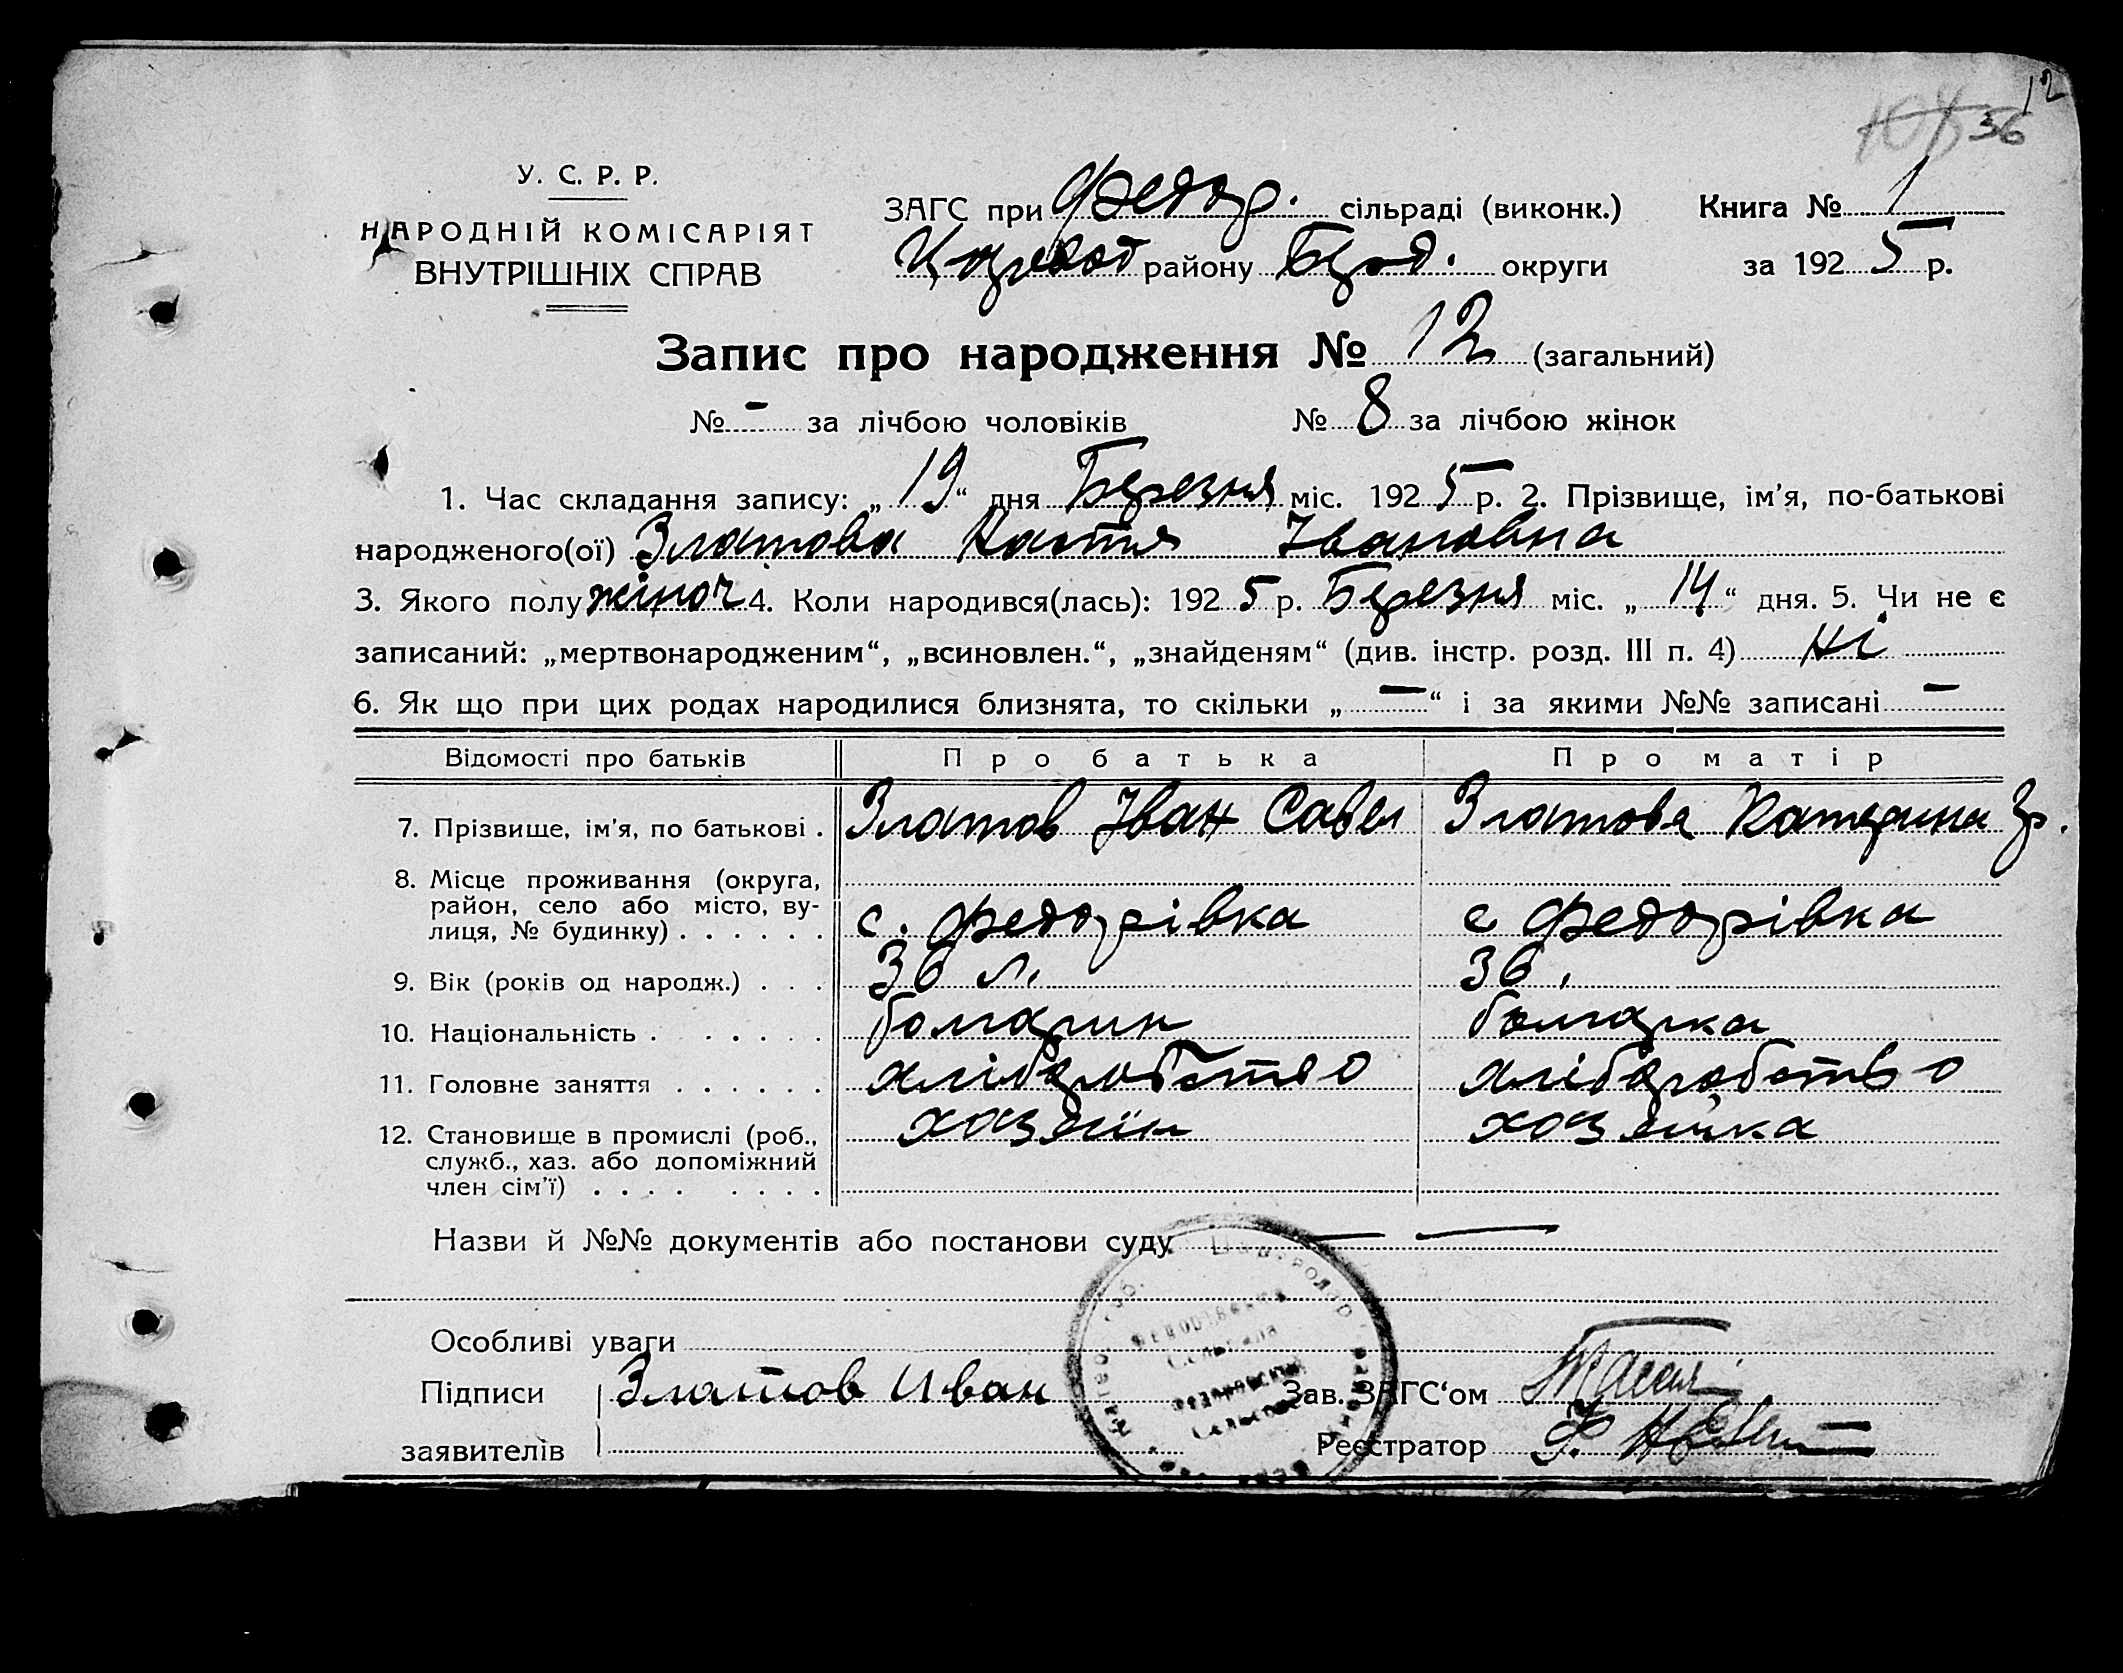 12
36
У. С. Р. Р.
НАРОДНІЙ КОМІСАРІЯТ
ВНУТРІШНІХ СПРАВ
ЗАГС при Федор. сільраді (виконк.) Книга № 1
району округи за 1925 р.
Запис про народження № 12 (загальний)
№ - за лічбою чоловіків № 8 за лічбою жінок
1. Час складання запису: „19“ дня Березня міс. 1925 р. 2. Прізвище, ім'я, по-батькові
народженого(ої) Златова Катя Івановна
3. Якого полу жіноч 4. Коли народився(лась): 1925 р. Березня міс. „14“ дня. 5. Чи не є
записаний: „мертвонародженим“, „всиновлен.“, „знайденям“ (див. інстр. розд. III п. 4) ні
6. Як що при цих родах народилися близнята, то скільки „—“ і за якими №№ записані —
Відомості про батьків Про батька Про матір
7. Прізвище, ім'я, по батькові . Златов Іван Савел Златова Катерина
8. Місце проживання (округа,
район, село або місто, ву-
лиця, № будинку) . . . . . . с. Федорівка с Федорівка
9. Вік (років од народж.) . . . 36 л. 36.
10. Національність . . . . . . болгарин болгарка
11. Головне заняття . . . . . . хліборобство хліборобство
12. Становище в промислі (роб., хазяїн хозяйка
служб., хаз. або допоміжний
член сім'ї) . . . . . . . .
Назви й №№ документів або постанови суду — —
Особливі уваги
Підписи Златов Иван Зав. ЗАГС‘ом
заявителів Реєстратор